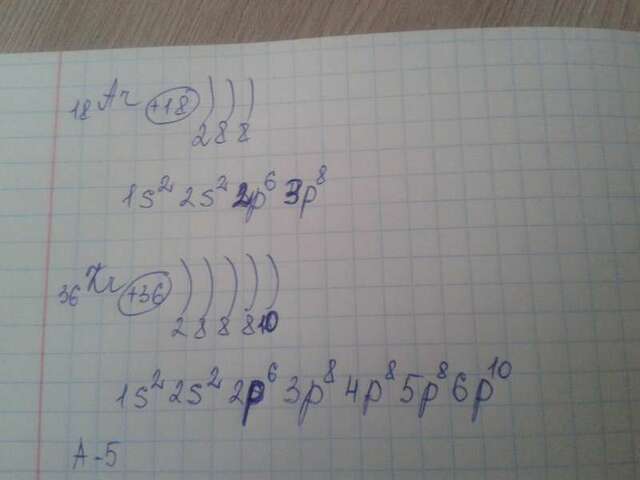 ₁₈Ar +18 ) ) )
2 8 8
1s² 2s² 2p⁶ 3p⁸
₃₆Kr +36 ) ) ) ) )
2 8 8 8 10
1s² 2s² 2p⁶ 3p⁸ 4p⁸ 5p⁸ 6p¹⁰
A-5